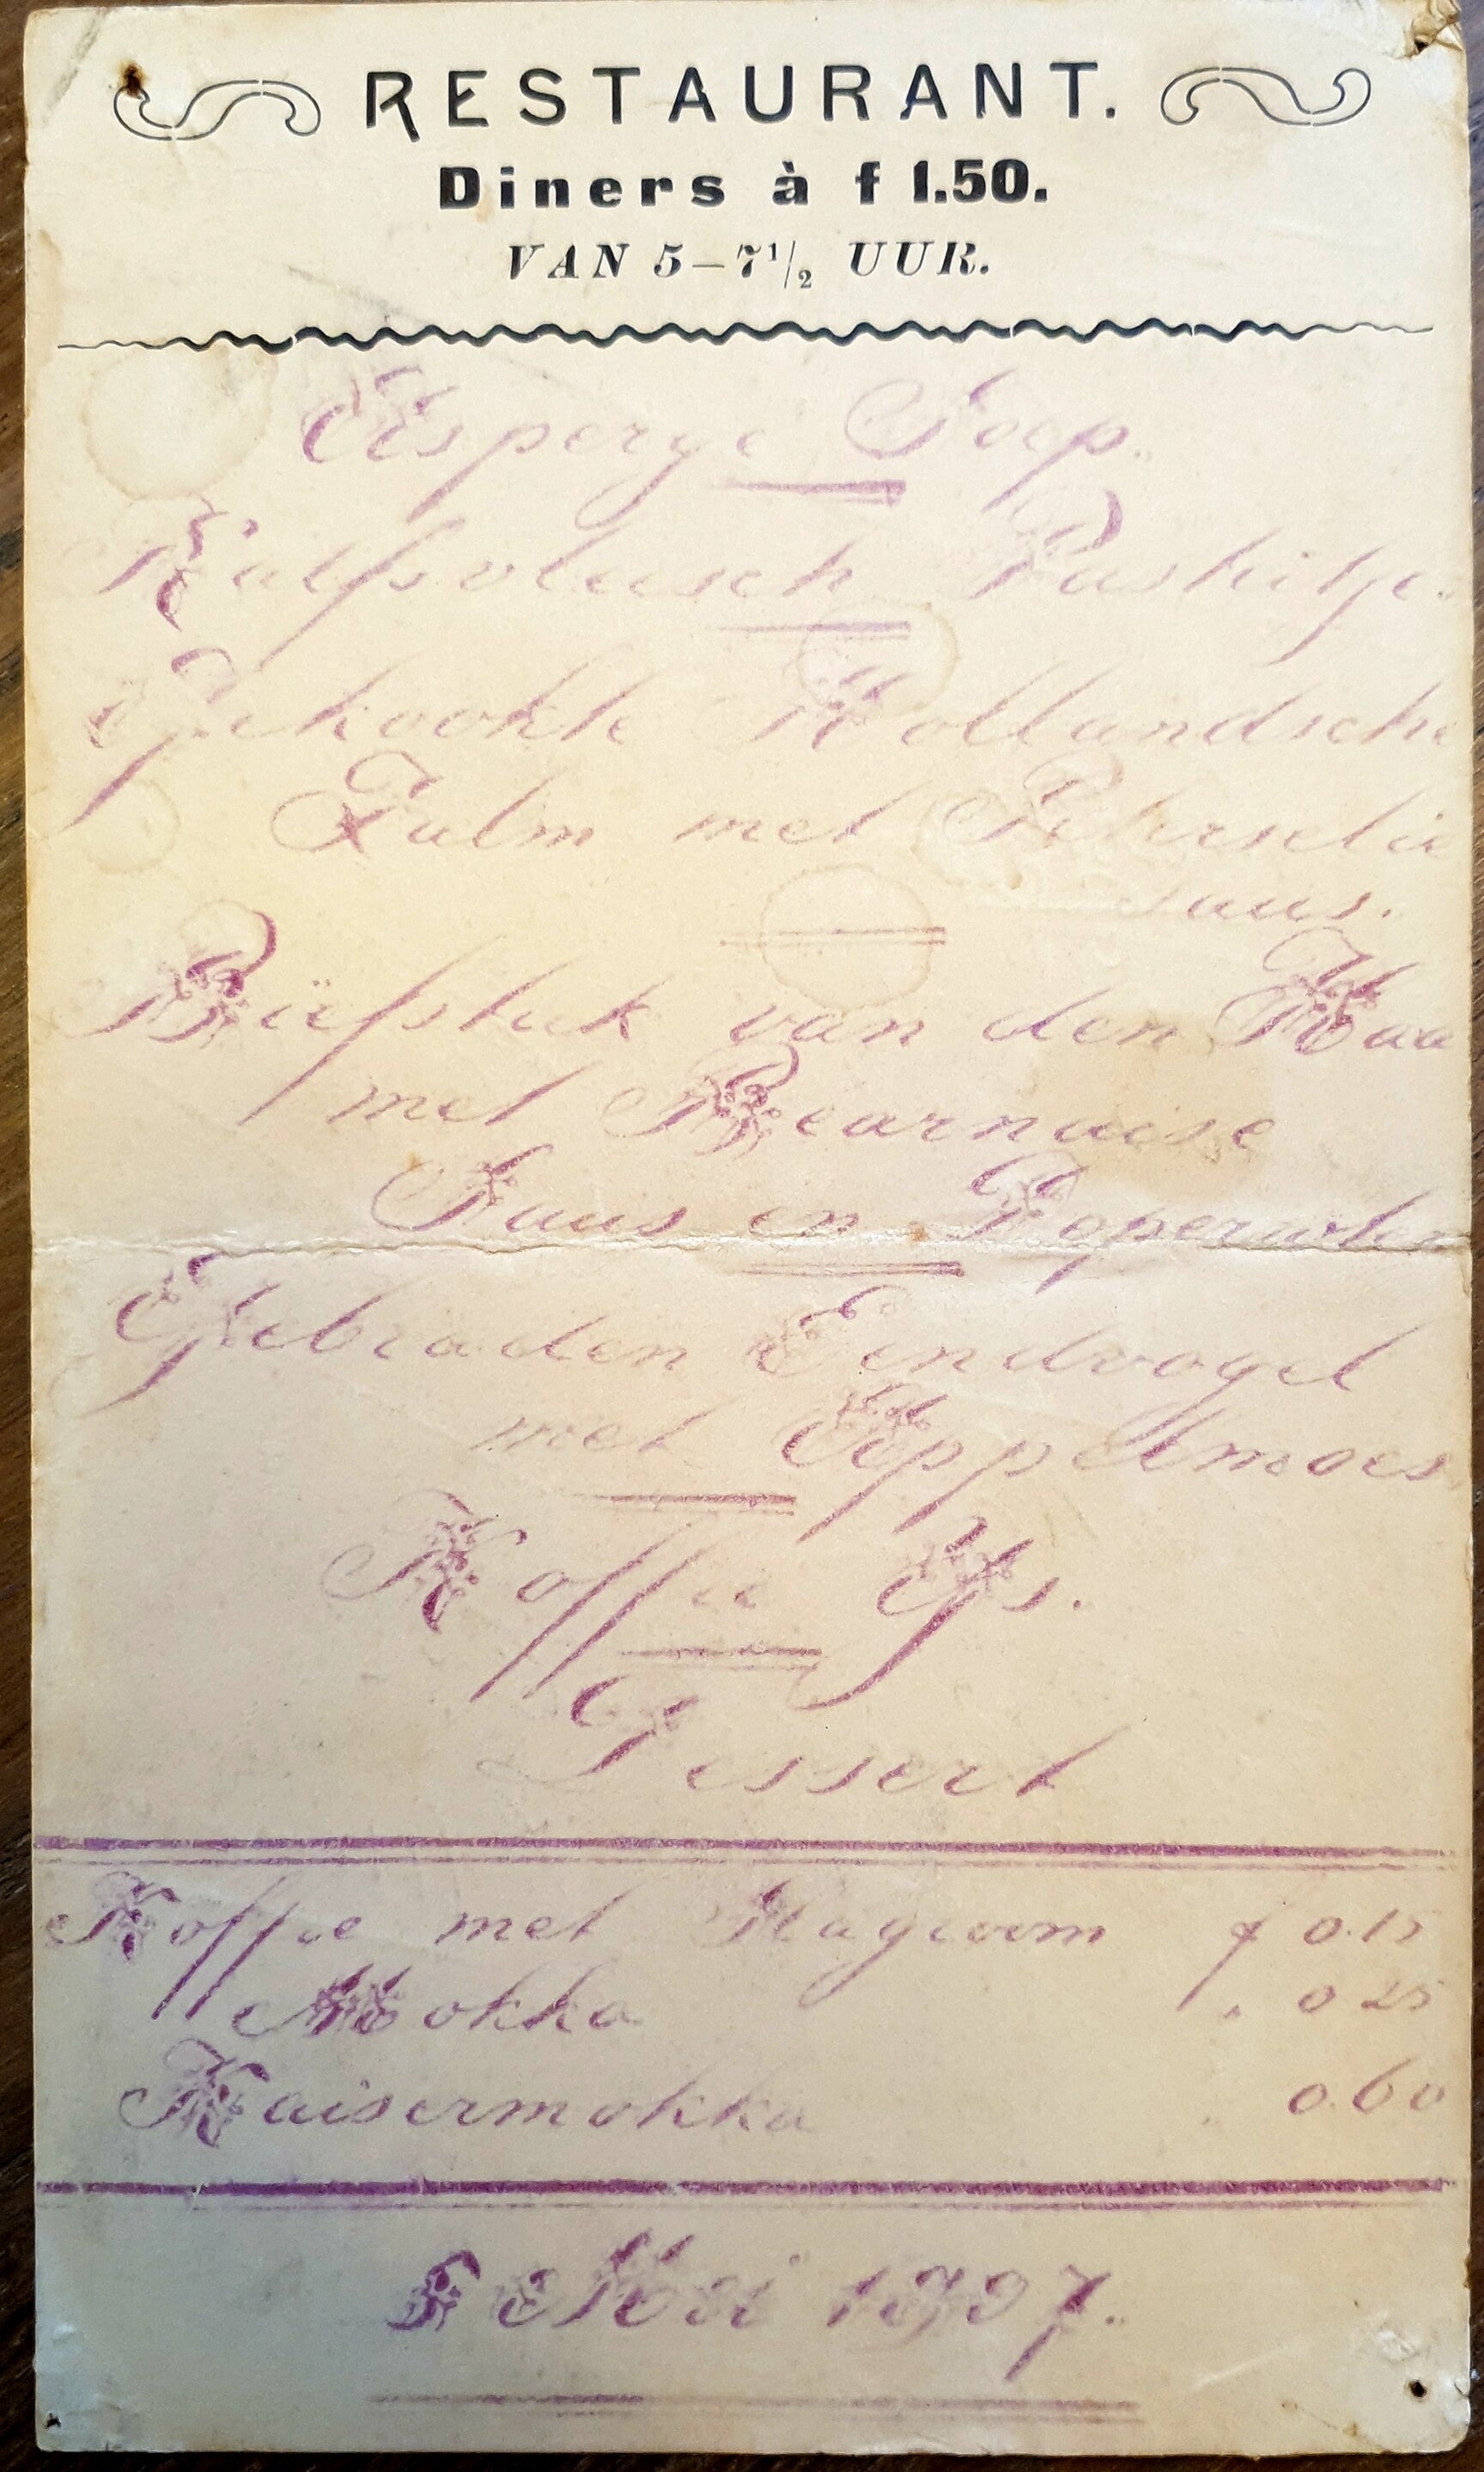 RESTAURANT.
Diners à f 1.50.
VAN 5–7 1/2 UUR.
Asperge Soep.
Kalfsvleesch Pasteitje.
Gekookte Hollandsche
Zalm met Peterselie
saus.
Biefstuk van den Haa
met Bearnaise
Saus en Doperwten
Gebraden Eendvogel
met Appelmoes
Koffie Ys.
Dessert
Koffie met Slagroom f 0.15
Mokka " 0 25
Kaisermokka " 0.60
Mei